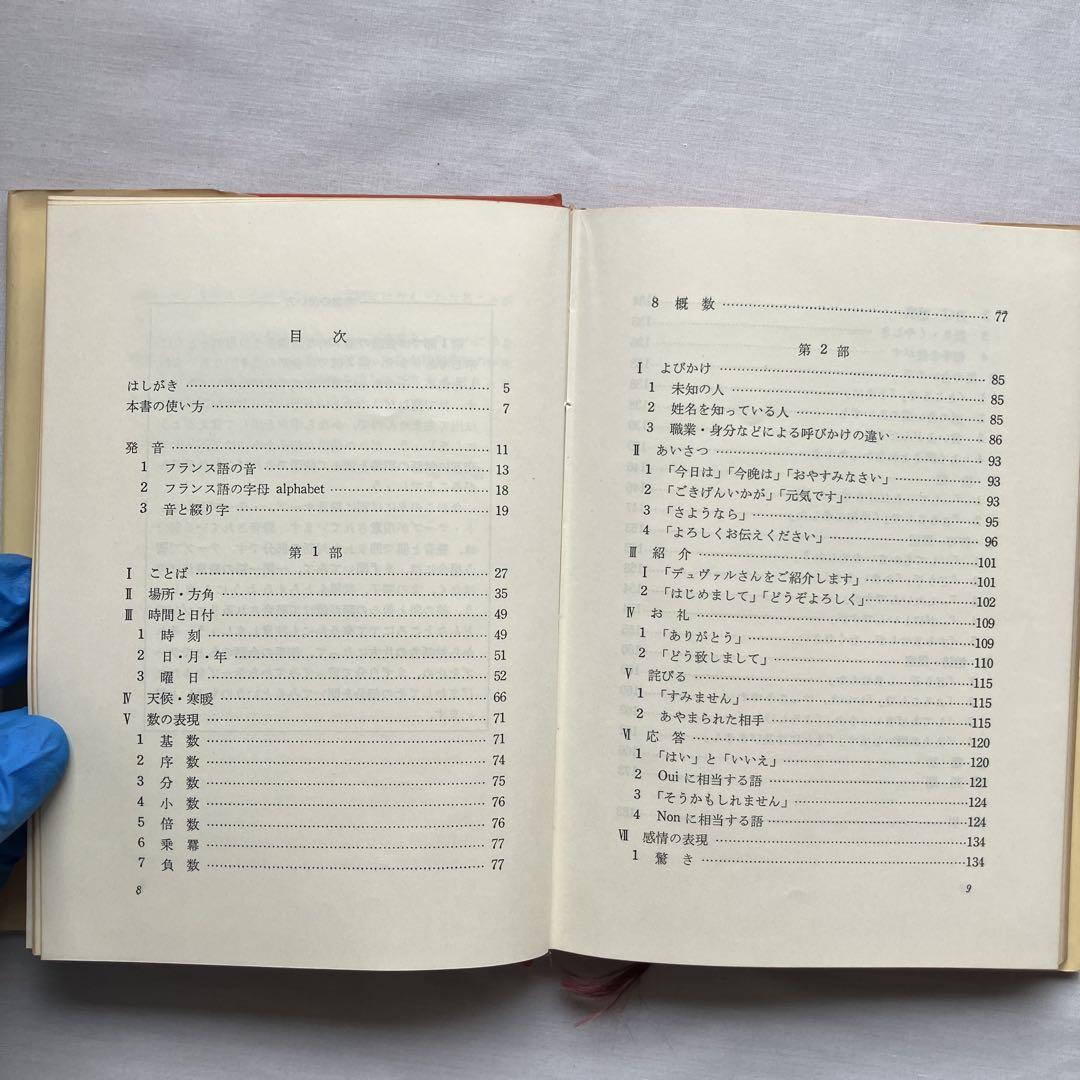 目 次
はしがき 5
本書の使い方 7
発 音 11
1 フランス語の音 13
2 フランス語の字母 alphabet 18
3 音と綴り字 19
第1部
Ⅰ ことば 27
Ⅱ 場所・方角 35
Ⅲ 時間と日付 49
1 時 刻 49
2 日・月・年 51
3 曜 日 52
Ⅳ 天候・寒暖 66
Ⅴ 数の表現 71
1 基 数 71
2 序 数 74
3 分 数 75
4 小 数 76
5 倍 数 76
6 乗 羃 77
7 負 数 77
8
8 概 数 77
第2部
Ⅰ よびかけ 85
1 未知の人 85
2 姓名を知っている人 85
3 職業・身分などによる呼びかけの違い 86
Ⅱ あいさつ 93
1 「今日は」「今晩は」「おやすみなさい」 93
2 「ごきげんいかが」「元気です」 93
3 「さようなら」 95
4 「よろしくお伝えください」 96
Ⅲ 紹 介 101
Ⅰ 「デュヴァルさんをご紹介します」 101
2 「はじめまして」「どうぞよろしく」 102
Ⅳ お 礼 109
1 「ありがとう」 109
2 「どう致しまして」 110
Ⅴ 詫びる 115
1 「すみません」 115
2 あやまられた相手 115
Ⅵ 応 答 120
1 「はい」と「いいえ」 120
2 Oui に相当する語 121
3 「そうかもしれません」 124
4 Non に相当する語 124
Ⅶ 感情の表現 134
1 驚 き 134
9